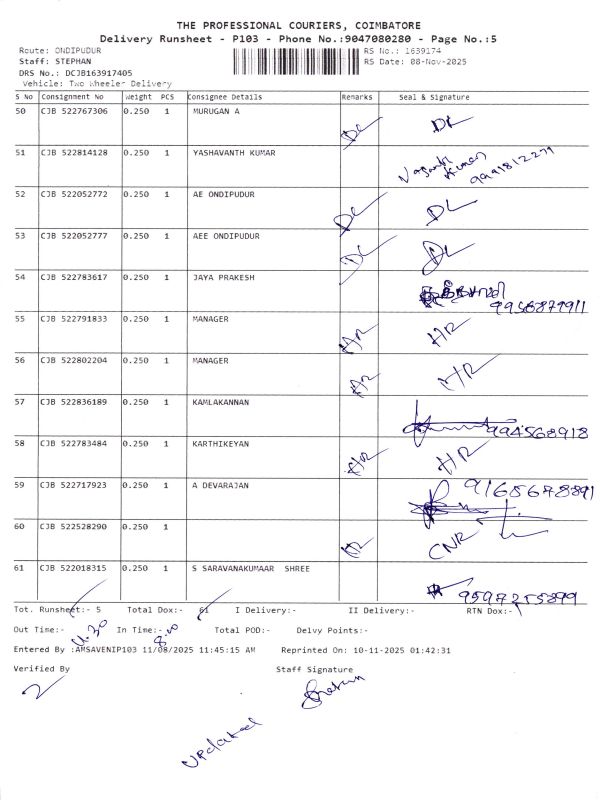 THE PROFESSIONAL COURIERS, COIMBATORE
Delivery Runsheet - P103 - Phone No.:9047080280 - Page No.:5
Route: ONDIPUDUR RS No.: 1639174
Staff: STEPHAN RS Date: 08-Nov-2025
DRS No.: DCJB163917405
Vehicle: Two Wheeler Delivery
S No Consignment No Weight PCS Consignee Details Remarks Seal & Signature
50 CJB 522767306 0.250 1 MURUGAN A DL DL
51 CJB 522814128 0.250 1 YASHAVANTH KUMAR Kumar
52 CJB 522052772 0.250 1 AE ONDIPUDUR DL DL
53 CJB 522052777 0.250 1 AEE ONDIPUDUR DL DL
54 CJB 522783617 0.250 1 JAYA PRAKESH
55 CJB 522791833 0.250 1 MANAGER HR HR
56 CJB 522802204 0.250 1 MANAGER HR HR
57 CJB 522836189 0.250 1 KAMLAKANNAN 994568918
58 CJB 522783484 0.250 1 KARTHIKEYAN HR HR
59 CJB 522717923 0.250 1 A DEVARAJAN
60 CJB 522528290 0.250 1 HR CNR
61 CJB 522018315 0.250 1 S SARAVANAKUMAAR SHREE 9597255899
Tot. Runsheet:- 5 Total Dox:- 61 I Delivery:- II Delivery:- RTN Dox:-
Out Time:- 11.30 In Time:- 8.00 Total POD:- Delvy Points:-
Entered By :AMSAVENIP103 11/08/2025 11:45:15 AM Reprinted On: 10-11-2025 01:42:31
Verified By Staff Signature
Updated